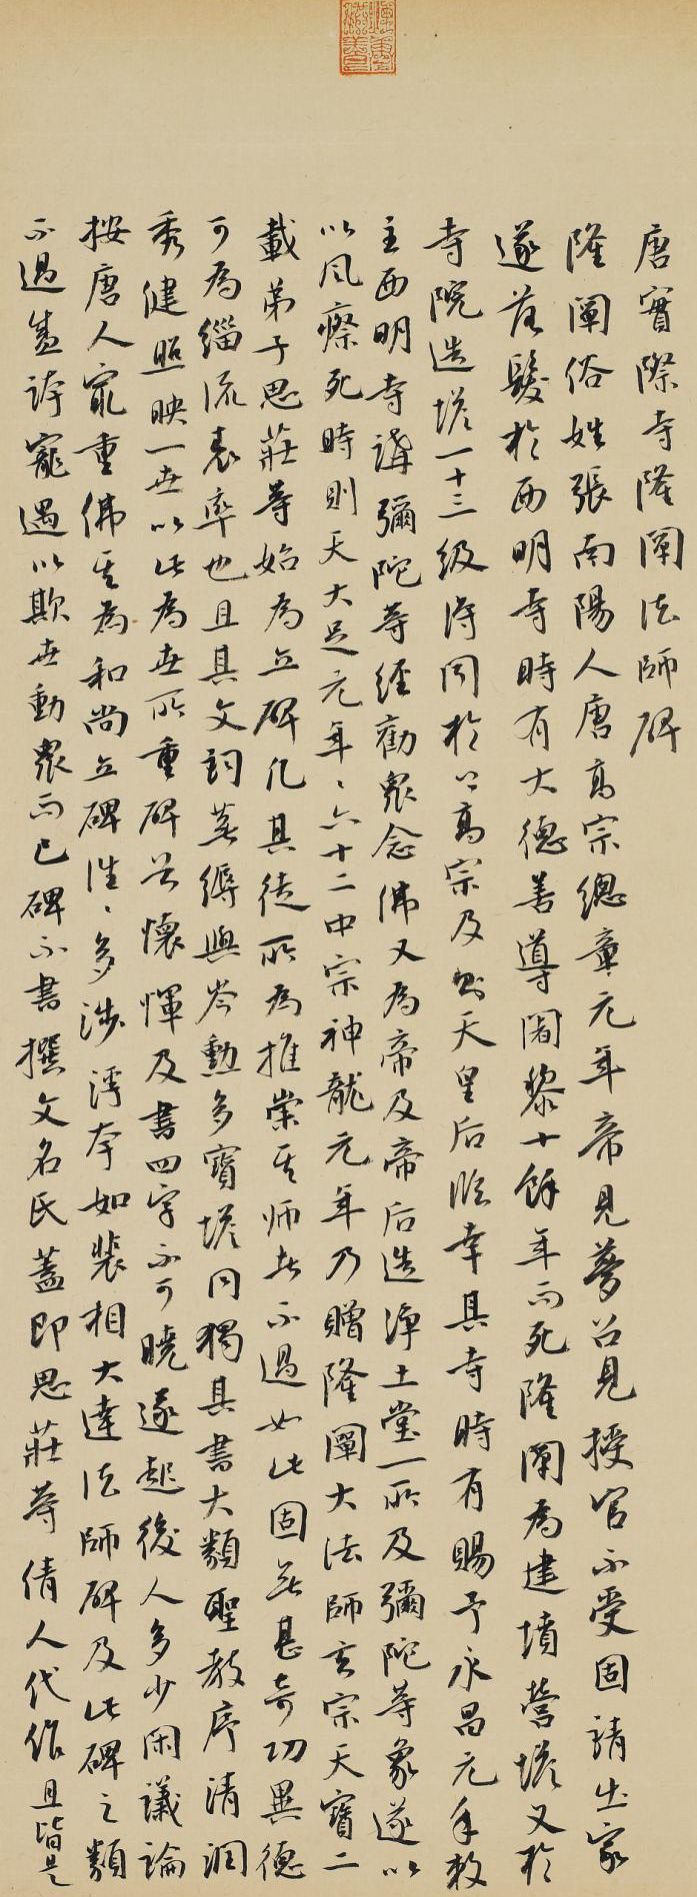 唐實際寺隆闡法師碑
隆闡俗姓張南陽人唐高宗總章元年帝見夢召見授官不受固請出家
遂落髮於西明寺時有大德善導闍黎十餘年而死隆闡為建墳營塔又於
寺院造塔一十三級得聞於上高宗及則天皇后臨幸其寺時有賜予永昌元年敕
主西明寺講彌陀等經勸眾念佛又為帝及帝后造淨土堂一所及彌陀等象遂以
以風瘵死時則天大足元年、六十二中宗神龍元年乃贈隆闡大法師玄宗天寶二
載弟子思莊等始為立碑凡其徒所為推崇其師者不過如此固無甚奇功異德
可為緇流表率也且其文詞蕪縟與岑勳多寶塔同獨其書大類聖教序清潤
秀健照映一世以此為世所重碑首懷惲及書四字不可曉遂起後人多少閑議論
按唐人寵重佛其為和尚立碑往、多涉浮夸如裴相大達法師碑及此碑之類
不過盛誇寵遇以欺世動眾而已碑不書撰文名氏蓋即思莊等倩人代作且皆是